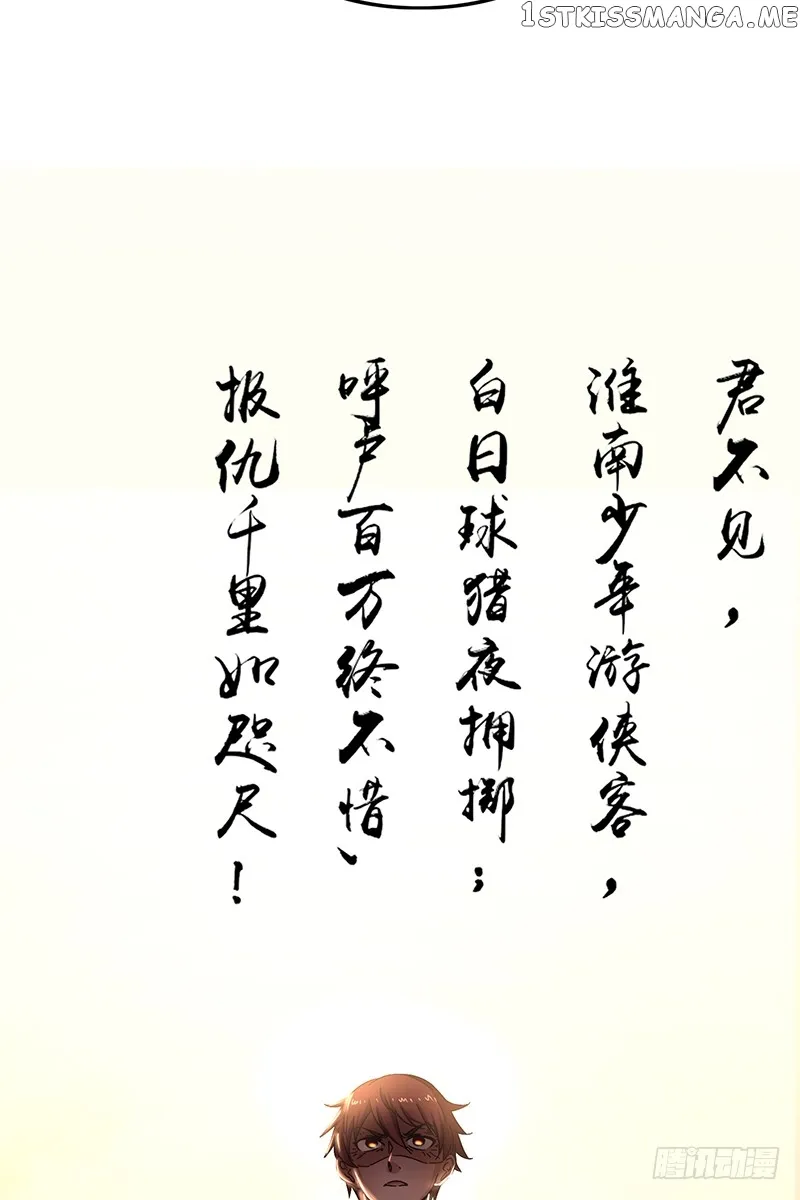 1STKISSMANGA.ME
君不见，
淮南少年游侠客，
白日球猎夜拥掷；
呼卢百万终不惜、
报仇千里如咫尺！
腾讯动漫